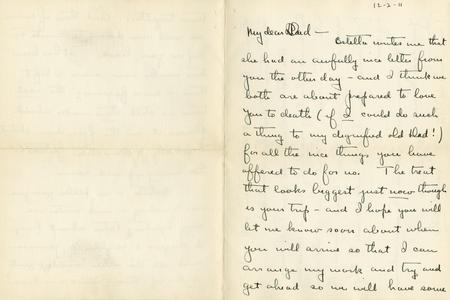 12-2-11
My dear Dad —
Estelle writes me that
she had an awfully nice letter from
you the other day — and I think we
both are about prepared to love
you to death (if I could do such
a thing to my dignified old Dad!)
for all the nice things you have
offered to do for us. The treat
that looks biggest just now though
is your trip — and I hope you will
let me know soon about when
you will arrive so that I can
arrange my work and try and
get ahead so we will have some